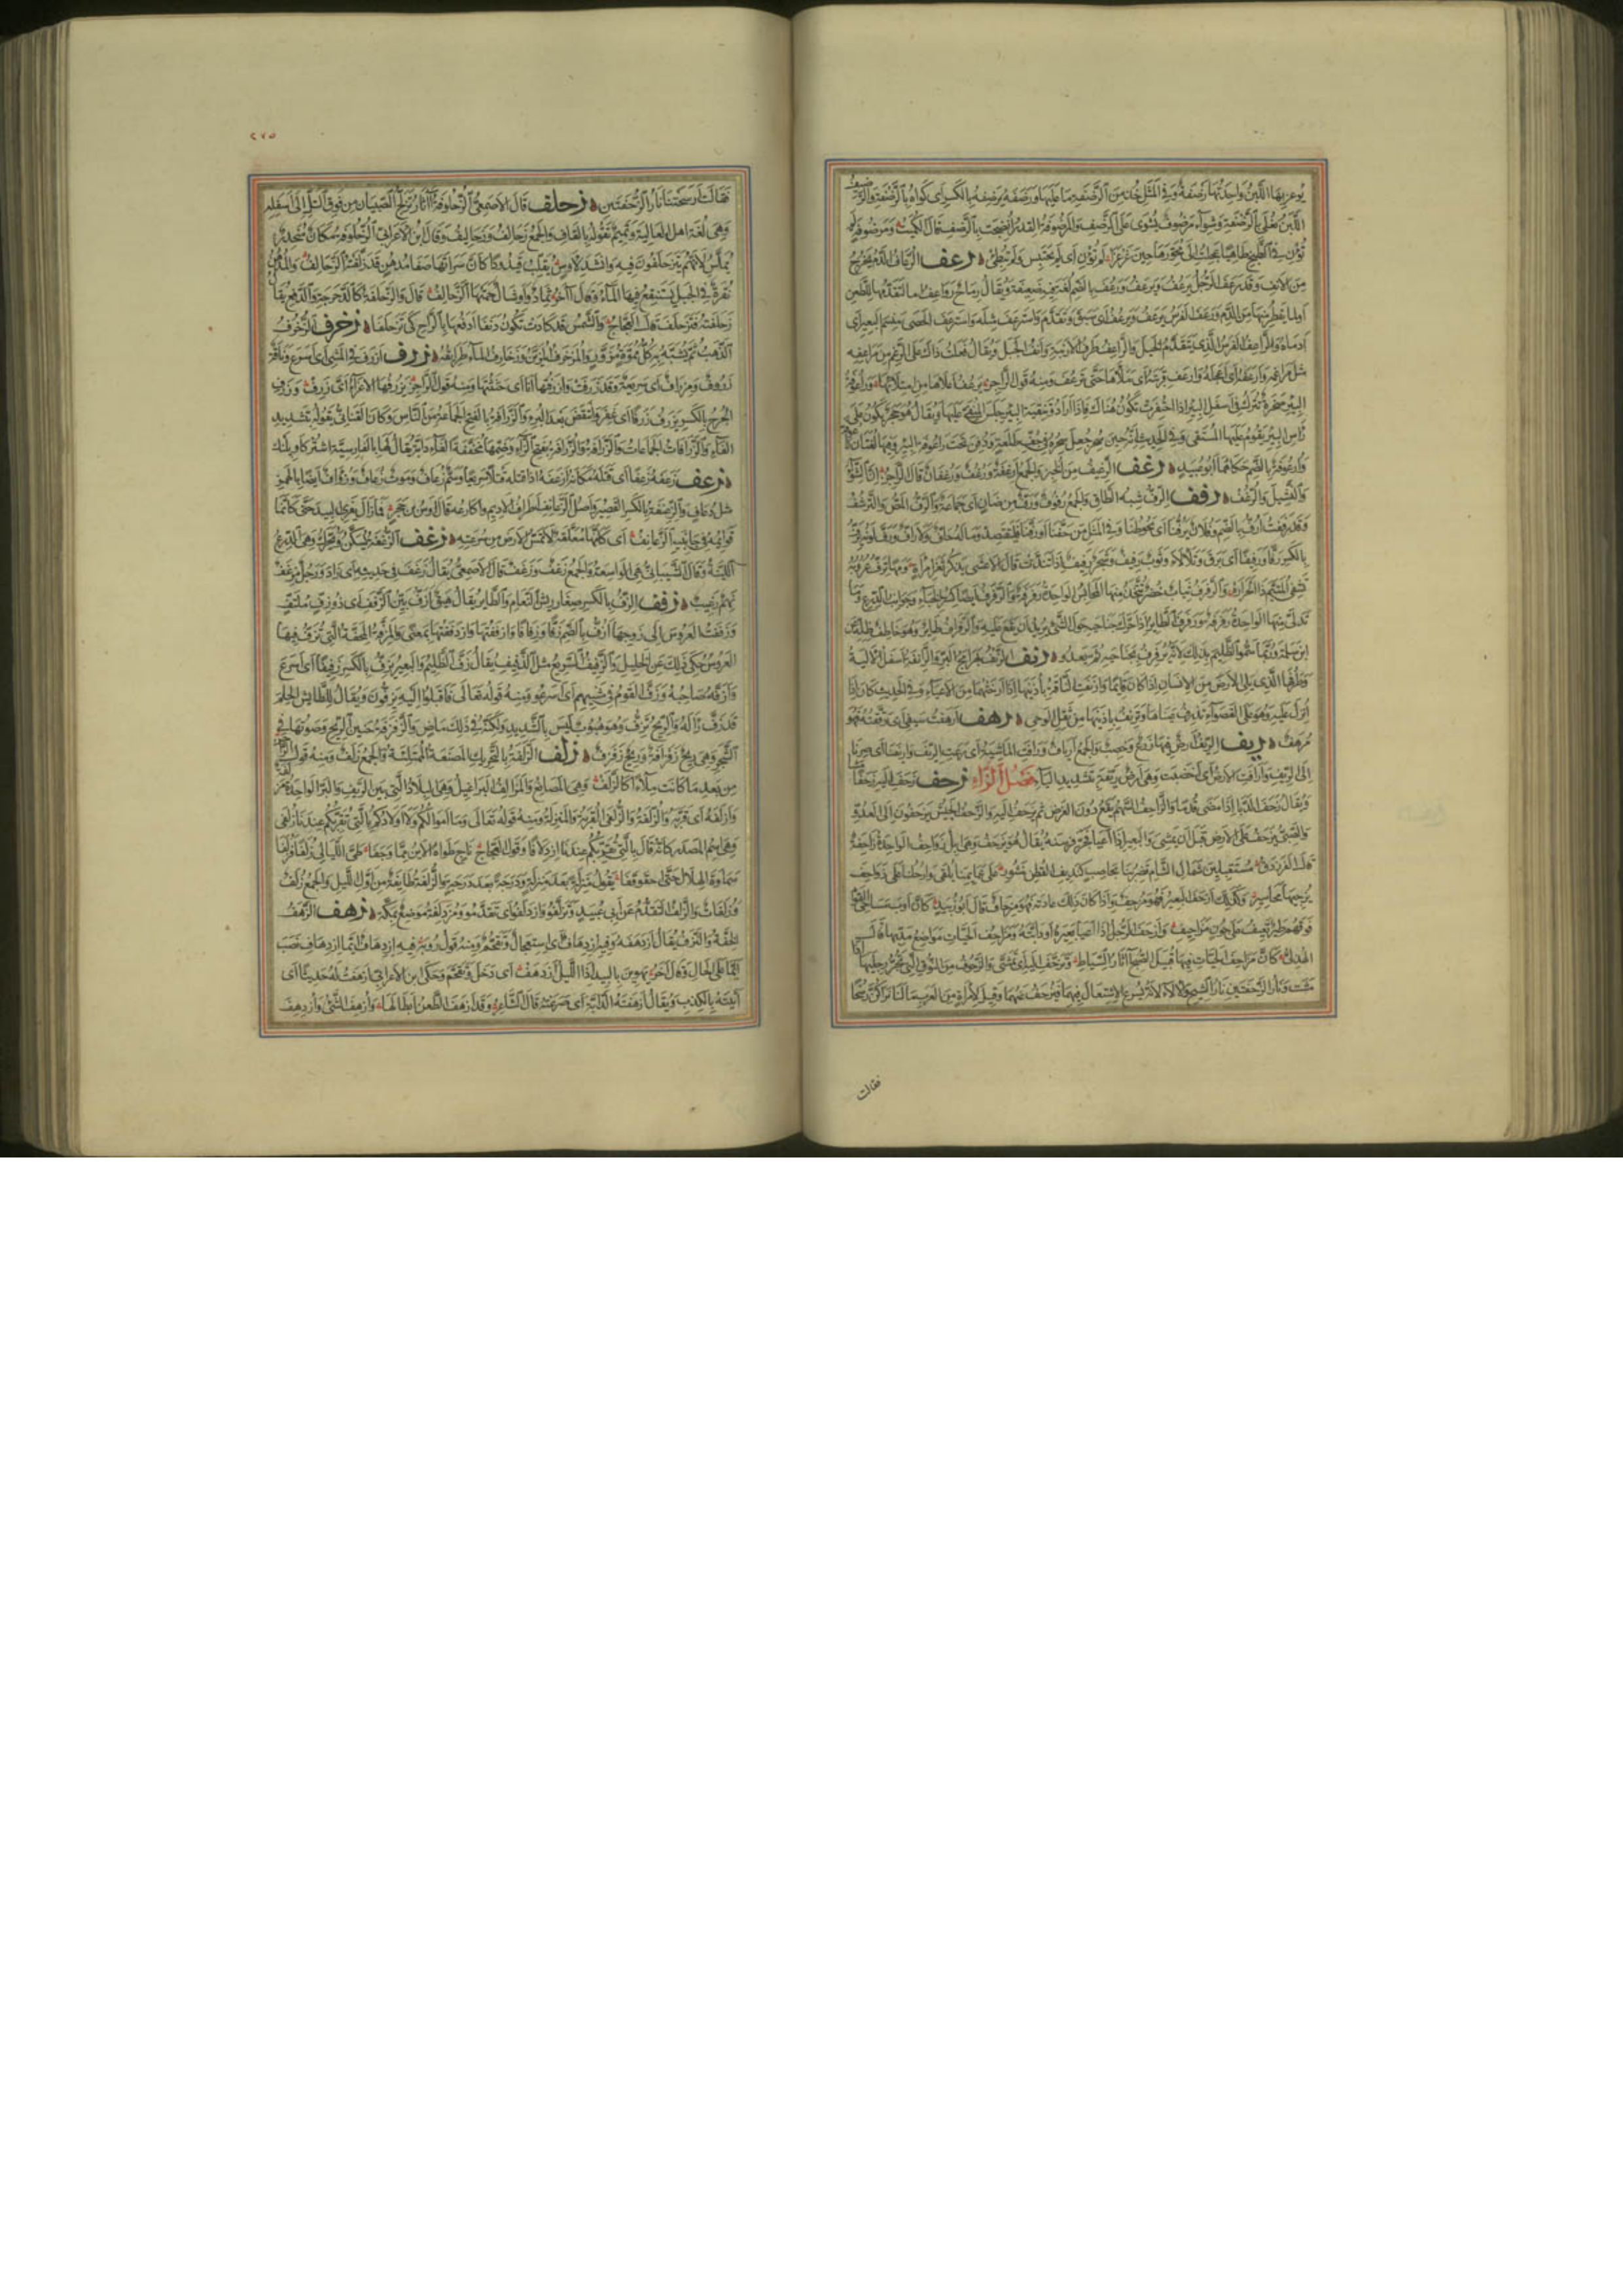 يوغر بها اللبن واحدتها رضفة وفي المثل خذ من الرضفة ما عليها ورضفه يرضفه بالكسر اى كواه بالرضفة والرضيف
اللبن يغلى بالرضفة وشواء مرضوف يشوى على الرضف والمرضوفة القدر انضجت بالرضف قال الكميت ومرضوفة لم
تؤن في الطبخ طاهيا عجلت الى محورها حين غرغرا لم تؤن اى لم تحتبس ولم تبطئ رعف الرعاف الدم يخرج
من الانف وقد رعف الرجل يرعف ويرعف ورعف بالضم لغة فيه ضعيفة ويقال رماح رواعف اما لتقدمها للطعن
او لما يقطر منها من الدم ورعف الفرس يرعف ويرعف اى سبق وتقدم واسترعف مثله واسترعف الحصى منسم البعير اى
ادماه والراعف الفرس الذى يتقدم الخيل والراعف طرف الارنبة وانف الجبل ويقال فعلت ذاك على الرغم من مراعفه
مثل مراغمه وارعفه اى اعجله وارعف قربته اى ملأها حتى ترعف ومنه قول الراجز يرعف اعلاها من امتلائها وراعوفة
البئر صخرة تترك في اسفل البئر اذا احتفرت تكون هناك فاذا ارادوا تنقية البئر جلس المنقى عليها ويقال هو حجر يكون على
رأس البئر يقوم عليها المستقى وفي الحديث انه حين سحر جعل سحره في جف طلعة ودفن تحت راعوفة البئر وفيها لغتان راعوفة
وارعوفة بالضم حكاهما ابو عبيد رغف الرغيف من الخبز والجمع ارغفة ورغف ورغفان قال الراجز ان الشواء
والنشيل والرغف رفف الرف شبه الطاق والجمع رفوف ورف من ضان اى جماعة والرف المص والترشف
وقد رففت ارف بالضم وفلان يرفنا اى يحوطنا وفي المثل من حفنا او رفنا فليقتصد وما له حاف ولا راف ورف لونه يرف
بالكسر رفا ورفيفا اى برق وتلألأ وثوب رفيف وشجر رفيف اذا تندت قال الاعشى يذكر ثغر امرأة ومها ترف غروبه
تشفى المتيم ذا الحرارة والرفرف ثياب خضر تتخذ منها المحابس الواحدة رفرفة والرفرف ايضا كسر الخباء وجوانب الدرع وما
تدلى منها الواحدة رفرفة ورفرف الطائر اذا حرك جناحيه حول الشئ يريد ان يقع عليه والرفراف طائر وهو خاطف ظله عن
ابن سلمة وربما سموا الظليم بذلك لانه يرفرف بجناحيه ثم يعدو رنف الرنف بهرامج البر والرانفة اسفل الالية
وطرفها الذى يلى الارض من الانسان اذا كان قائما وارنفت الناقة باذنيها اذا ارختهما من الاعياء وفي الحديث كان اذا
انزل عليه وهو على القصواء تذرف عيناها وترنف باذنيها من ثقل الوحى رهف ارهفت سيفى اى رققته فهو
مرهف ريف الريف ارض فيها زرع وخصب والجمع ارياف ورافت الماشية اى رعت الريف واريفنا اى صرنا
الى الريف وارافت الارض اى اخصبت وهى ارض ريفة بتشديد الياء فصل الزاء زحف زحف اليه زحفا
ويقال زحف الدبا اذا مضى قدما والزاحف السهم يقع دون الغرض ثم يزحف اليه والزحف الجيش يزحفون الى العدو
والصبى يزحف على الارض قبل ان يمشى والبعير اذا اعيا فجر فرسنه يقال هو يزحف وهى ابل زواحف الواحدة زاحفة
قال الفرزدق مستقبلين شمال الشام تضربنا بحاصب كنديف القطن منثور على عمائمنا يلقى وارحلنا على زواحف
نزجيها محاسير وكذلك ازحف البعير فهو مزحف واذا كان ذلك عادته فهو مزحاف قال ابو زبيد كأن اوب مساحى القوم
فوقهم طير تعيف على جون مزاحيف وازحف الرجل اذا اعيا بعيره او دابته ومزاحف الحيات مواضع مدبها قال
الهذلى كأن مزاحف الحيات فيها قبيل الصبح آثار السياط وتزحف اليه اى تمشى والزحوف من النوق التى تجر رجليها اذا
مشت ونار الزحفتين نار الشيح والالاء لانه يسرع الاشتعال فيهما فيزحف عنهما وقيل لامرأة من العرب ما لنا نراكن رسحا
فقالت
٢٧٥
فقالت ارسحتنا نار الزحفتين زحلف قال الاصمعى الزحلوفة آثار تزلج الصبيان من فوق التل الى اسفله
وهى لغة اهل العالية وتميم تقوله بالقاف والجمع زحالف وزحاليف وقال ابن الاعرابى الزحلوفة مكان منحدر
مملس لانهم يتزحلفون فيه وانشد لاوس يقلب قيدودا كأن سراتها صفا مدهن قد زلقته الزحالف والمدهن
نقرة في الجبل يستنقع فيها الماء وقال آخر ثماد واوشال حمتها الزحالف قال والزحلفة كالدحرجة والدفع يقال
زحلفته فتزحلف قال العجاج والشمس قد كادت تكون دنفا ادفعها بالراح كى تزحلفا زخرف الزخرف
الذهب ثم يشبه به كل مموه مزور والمزخرف المزين وزخارف الماء طرائقه زرف ازرف في المشى اى اسرع وناقة
زروف ومزراف اى سريعة وقد زرفت وازرفتها انا اى حثثتها ومنه قول الراجز يزرفها الاغراء اى زرف وزرف
الجرح بالكسر يزرف زرفا اى غفر وانتقض بعد البرء والزرافة بالفتح الجماعة من الناس وكان القنانى يقوله بتشديد
الفاء والزرافات الجماعات والزرافة والزرافة بفتح الزاء وضمها مخففة الفاء دابة يقال لها بالفارسية اشتر كاو بلنك
زعف زعفه زعفا اى قتله مكانه وازعفه اذا قتله قتلا سريعا وسم زعاف وموت زعاف وزؤاف ايضا بالهمز
مثل ذعاف والزعنفة بالكسر القصير واصل الزعانف اطراف الاديم واكارعه قال اوس بن حجر فما زال يفرى البيد حتى كأنما
قوائمه في جانبيه الزعانف اى كأنها معلقة لا تمس الارض من سرعته زغف الزغفة يسكن ويحرك وهى الدرع
اللينة وقال الشيبانى هى الواسعة والجمع زغف وزغف قال الاصمعى يقال زغف في حديثه اى زاد ورجل مزغف
نهم رغيب زفف الزف بالكسر صغار ريش النعام والطائر يقال هيق ازف بين الزفف اى ذو زف ملتف
وزففت العروس الى زوجها ازف بالضم زفا وزفافا وازففتها وازدففتها بمعنى والمزفة المحفة التى تزف فيها
العروس حكى ذلك عن الخليل والزفيف السريع مثل الذفيف يقال زف الظليم والبعير يزف بالكسر زفيفا اى اسرع
وازفه صاحبه وزف القوم في مشيهم اى اسرعوا ومنه قوله تعالى فاقبلوا اليه يزفون ويقال للطائش الحلم
قد زف رأله والريح تزف وهو هبوب ليس بالشديد ولكنه في ذلك ماض والزفزفة حنين الريح وصوتها في
الشجر وهى ريح زفزافة وريح زفزف زلف الزلفة بالتحريك المصنعة الممتلئة والجمع زلف ومنه قول الراجز
من بعد ما كانت ملاء كالزلف وهى المصانع والمزالف البراغيل وهى البلاد التى بين الريف والبر الواحدة مزلفة
وازلفه اى قربه والزلفة والزلفى القربة والمنزلة ومنه قوله تعالى وما اموالكم ولا اولادكم بالتى تقربكم عندنا زلفى
وهى اسم المصدر كانه قال بالتى تقربكم عندنا ازدلافا وقول العجاج ناج طواه الاين مما وجفا طى الليالى زلفا فزلفا
سماوة الهلال حتى احقوقفا يقول منزلة بعد منزلة ودرجة بعد درجة والزلفة طائفة من اول الليل والجمع زلف
وزلفات والزلف التقدم عن ابى عبيد وتزلفوا وازدلفوا اى تقدموا ومزدلفة موضع بمكة زهف الزهف
الخفة والنزق يقال ازدهفه وفيه ازدهاف اى استعجال وتقحم ومنه قول رؤبة فيه ازدهاف ايما ازدهاف نصب
ايما على الحال وقال آخر يهوين بالبيد اذا الليل ازدهف اى دخل وتقحم وحكى ابن الاعرابى ازهفت له حديثا اى
اتيته بالكذب ويقال ازهفته الدابة اى صرعته قال الشاعر وقد ازهف الطعن ابطالها وازهف الشئ وازدهف